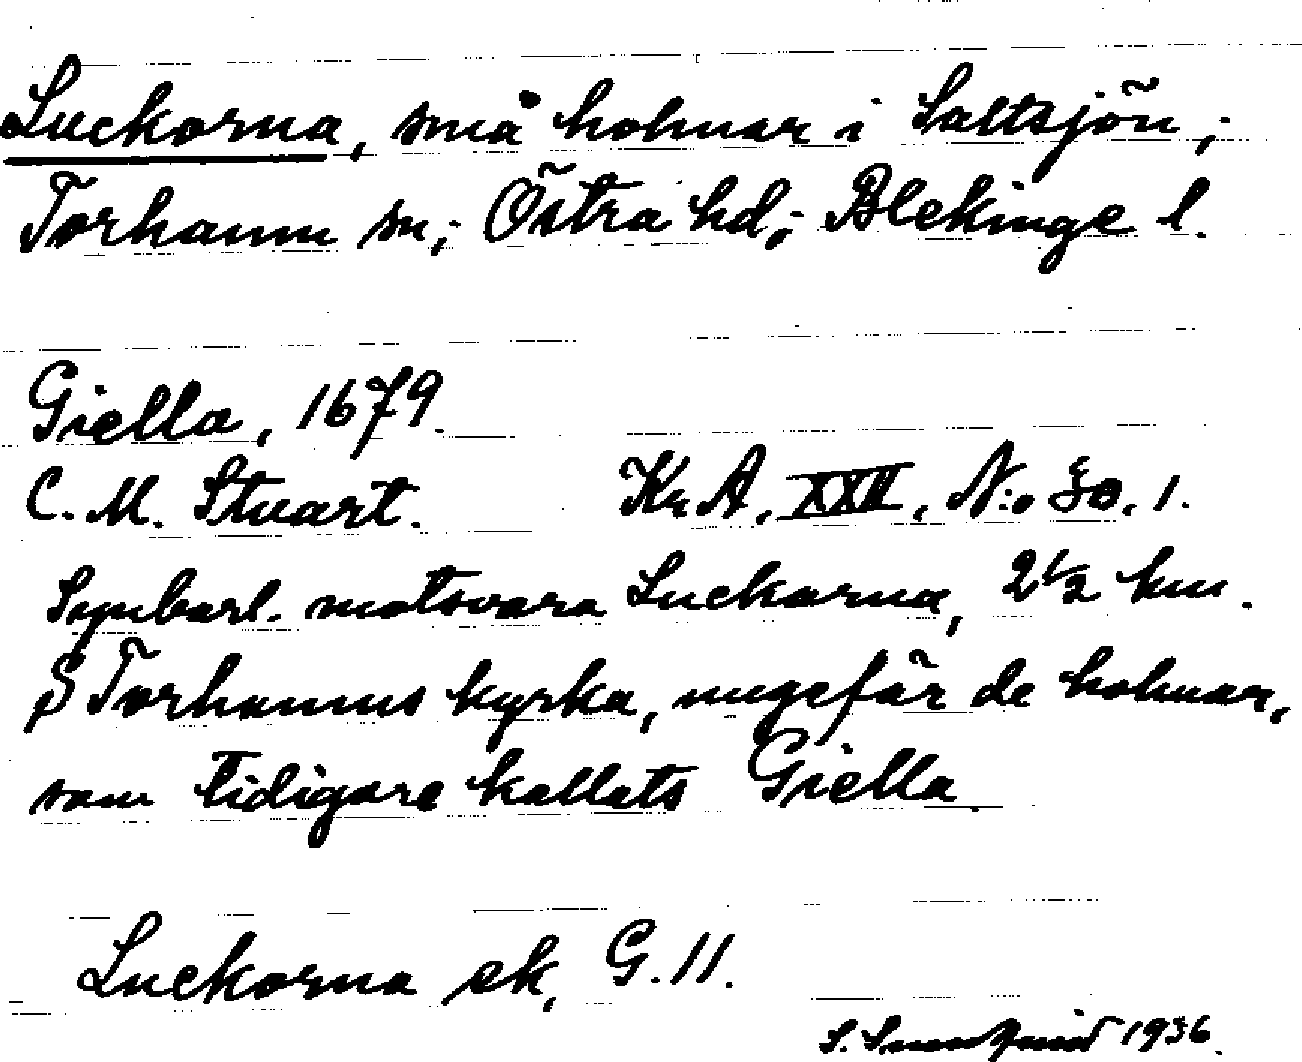 Luckorna, små holmar i Saltsjön;
Torhamn sn; Östra hd; Blekinge l.
Giella, 1679.
C. M. Stuart. Kr. A. XXII, N:o 30. 1.
Synbarl. motsvara Luckorna, 2 1/2 km.
S Torhamns kyrka, ungefär de holmar,
som tidigare kallats Giella.
Luckorna ek, G. 11.
S. 1936.